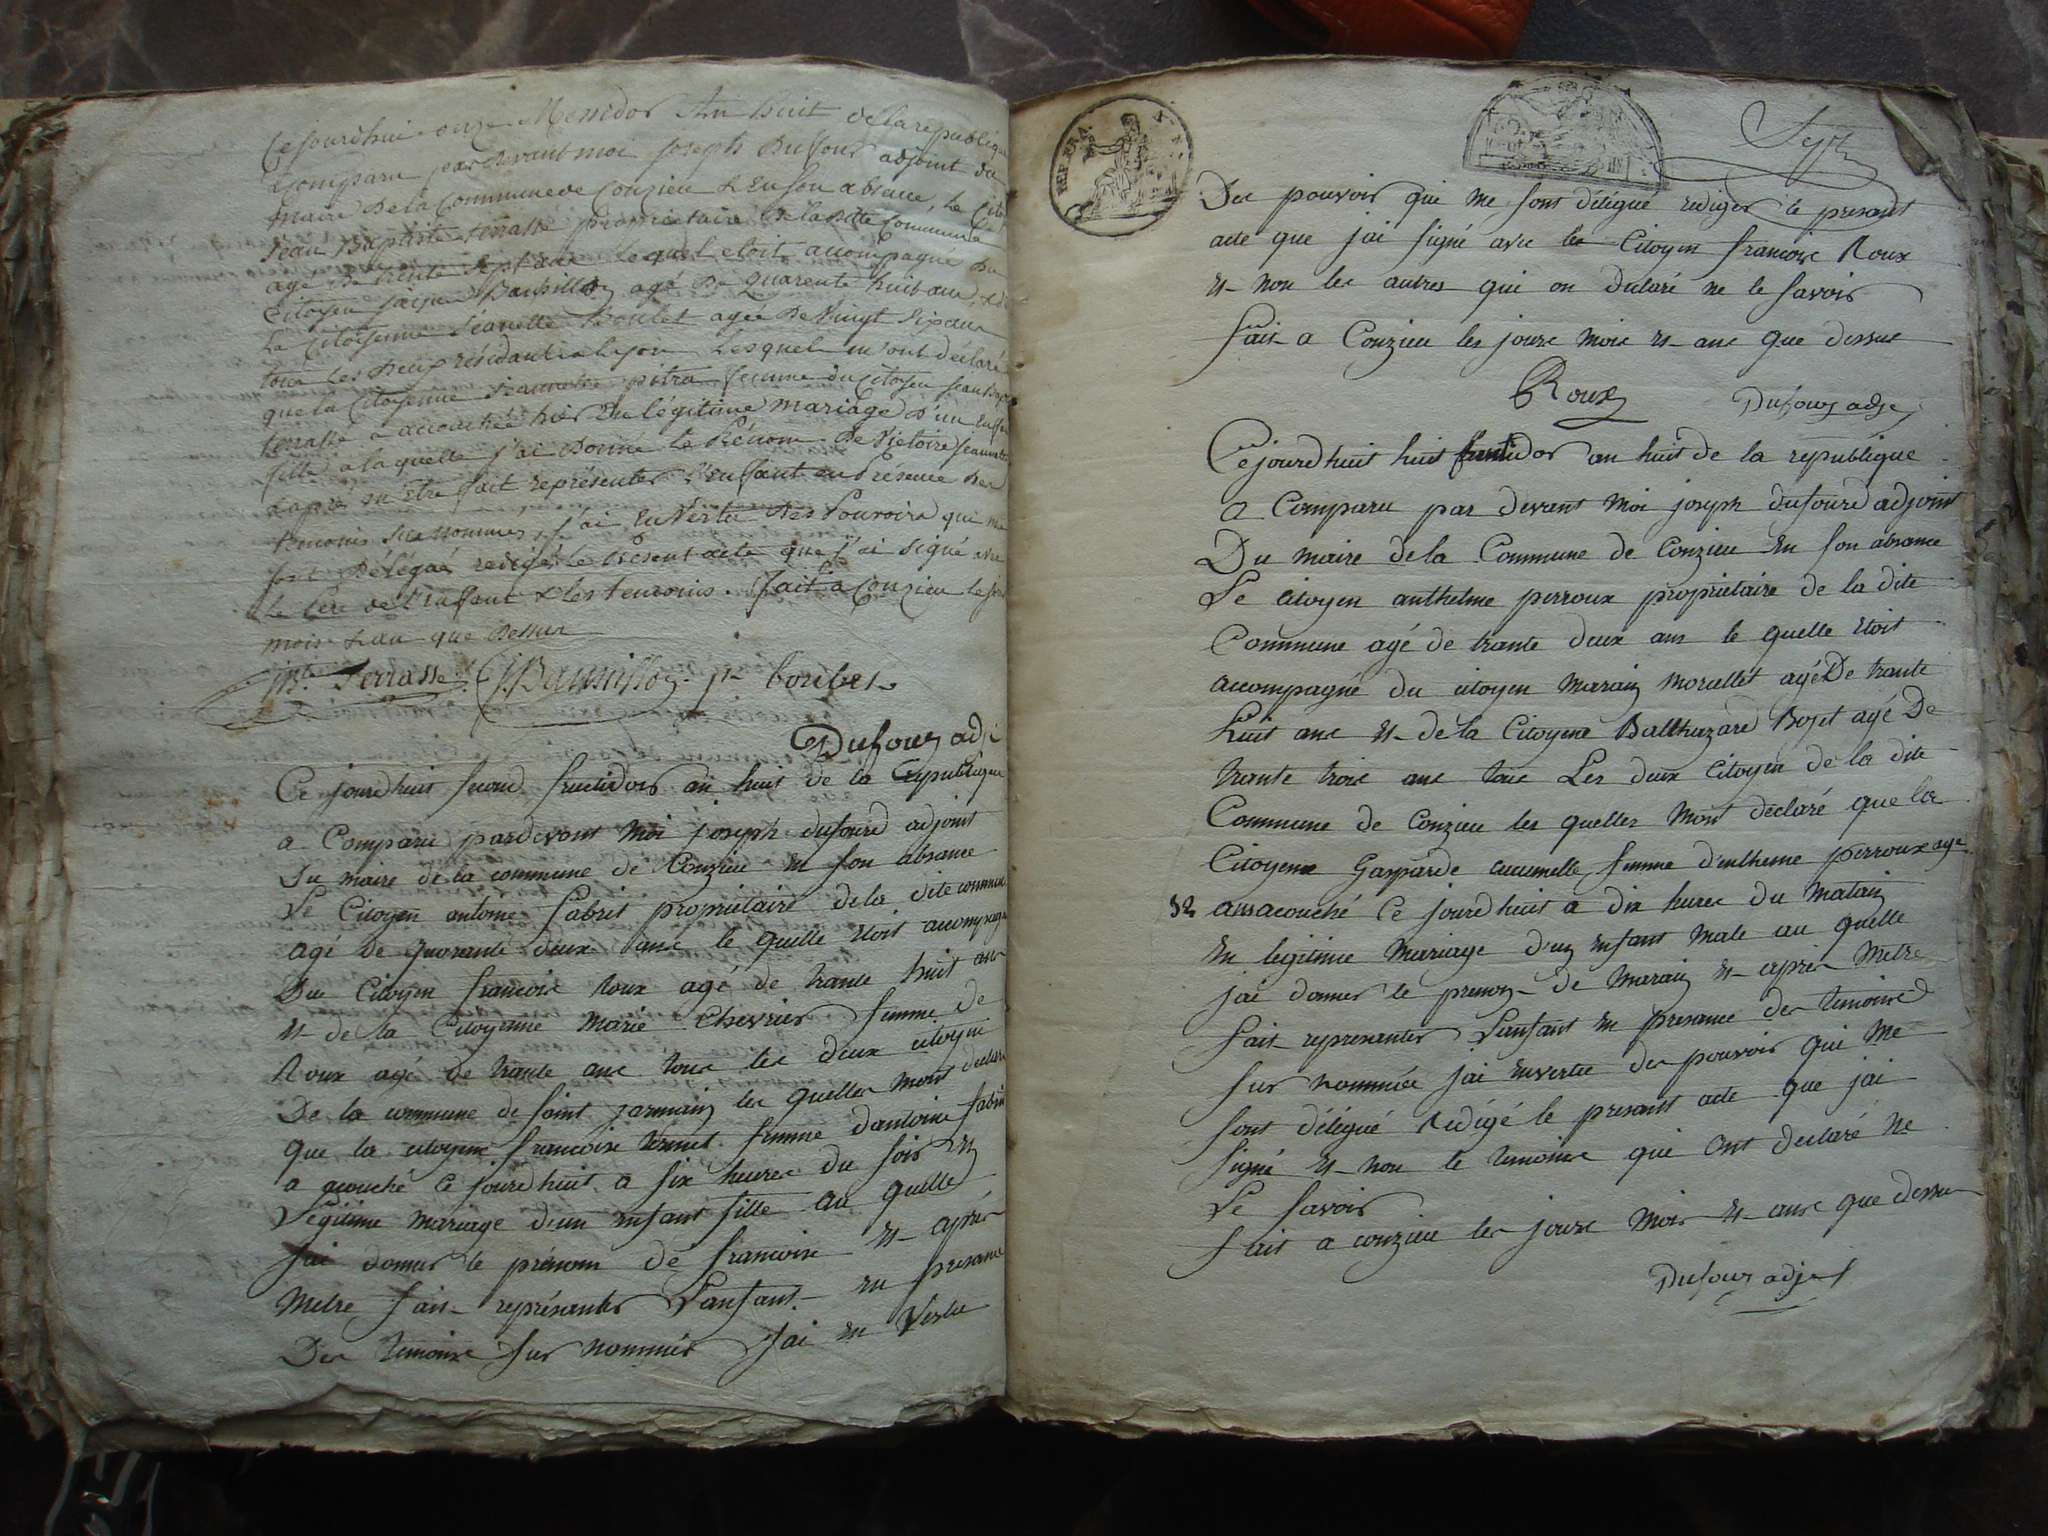 Ce jourd'hui onze Messidor An huit de la république
Comparu par devant moi Joseph Dufour adjoint du
maire de la Commune de Conzieu & en son absence, le Cit
Jean Baptiste terrasse propriétaire de la ditte Commune
agé de trente sept ans lequel etoit accompagné du
Citoyen agé de quarente huit ans, &
la Citoyenne agée de vingt six ans
tous les deux résidants a Lyon Lesquels m'ont déclaré
que la Citoyenne Jeannette pitra femme du Citoyen Jean
terrasse a accouchée hier en légitime mariage d'un enfan
fille a laquelle j'ai donné le Prénom de Victoire Jeannette
& après m'etre fait représenter l'Enfant en Présence des
temoins sus nommés, j'ai en Vertu des Pouvoirs qui me
sont Délégué redigé le présent acte que j'ai signé avec
le Père de l'enfant & les temoins. fait a Conzieu le jour
mois & an que dessus
Jn Bte Terrasse bouber
Dufour adj
Ce jourdhuit segond fructidor an huit de la republique
a Comparu pardevant Moi joseph dufourd adjoint
Du maire de la commune de Conzieu en son absance
Le Citoyen antoine fabret propriétaire de la dite commune
agé de quarante deux ans le quelle etoit accompagné
Du Citoyen francoise roux agé de trante huit ans
et de la Citoyenne Marie Chevrier femme de
Roux agé de trante ans tous les deux citoyen
De la commune de saint jarmain les quelles mont declaré
que la citoyene francoise femme dantoine fabret
a acouché ce jourdhuit a six heures du soir en
Légitime mariage d'un enfant fille au quelle
jai donner le prénom de francoise et après
Metre fait représanter Lanfant en presance
Des temoins sus nommés Jai en Vertu
REP. FRA.
Des pouvoir qui me sont délégué rediger le presant
acte que jai signé avec le Citoyen francoise Roux
et non les autres qui on declaré ne le savoir
fait a Conzieu les jours mois et ans que dessus
Roux Dufour adj
Ce jourdhuit huit fructidor an huit de la république
a Comparu par devant Moi joseph dufourd adjoint
Du maire de la Commune de Conzieu en son absance
Le citoyen anthelme perroux propriétaire de la dite
Commune agé de trante deux ans le quelle etoit
accompagné du citoyen Marain morellet agé De trante
huit ans et de la Citoyene Balthazare Bojet agé De
trante trois ans tous Les deux Citoyen de la dite
Commune de Conzieu les quelles Mont declaré que la
Citoyene Gasparde cucumelle femme d'entheme perroux age
32 ans acouché Ce jourdhuit a dix hures du Matain
en legitime Mariage d'un enfant Male au quelle
jai donner le prenon de Marain et après Metre
fait represanter Lanfant en presance des temoins
sus nommée jai envertu des pouvoir qui Me
sont délégué redigé le presant acte que jai
signé et non le temoins qui ont declaré ne
Le savoir
fait a conzieu les jours Mois et ans que dessus
Dufour adj